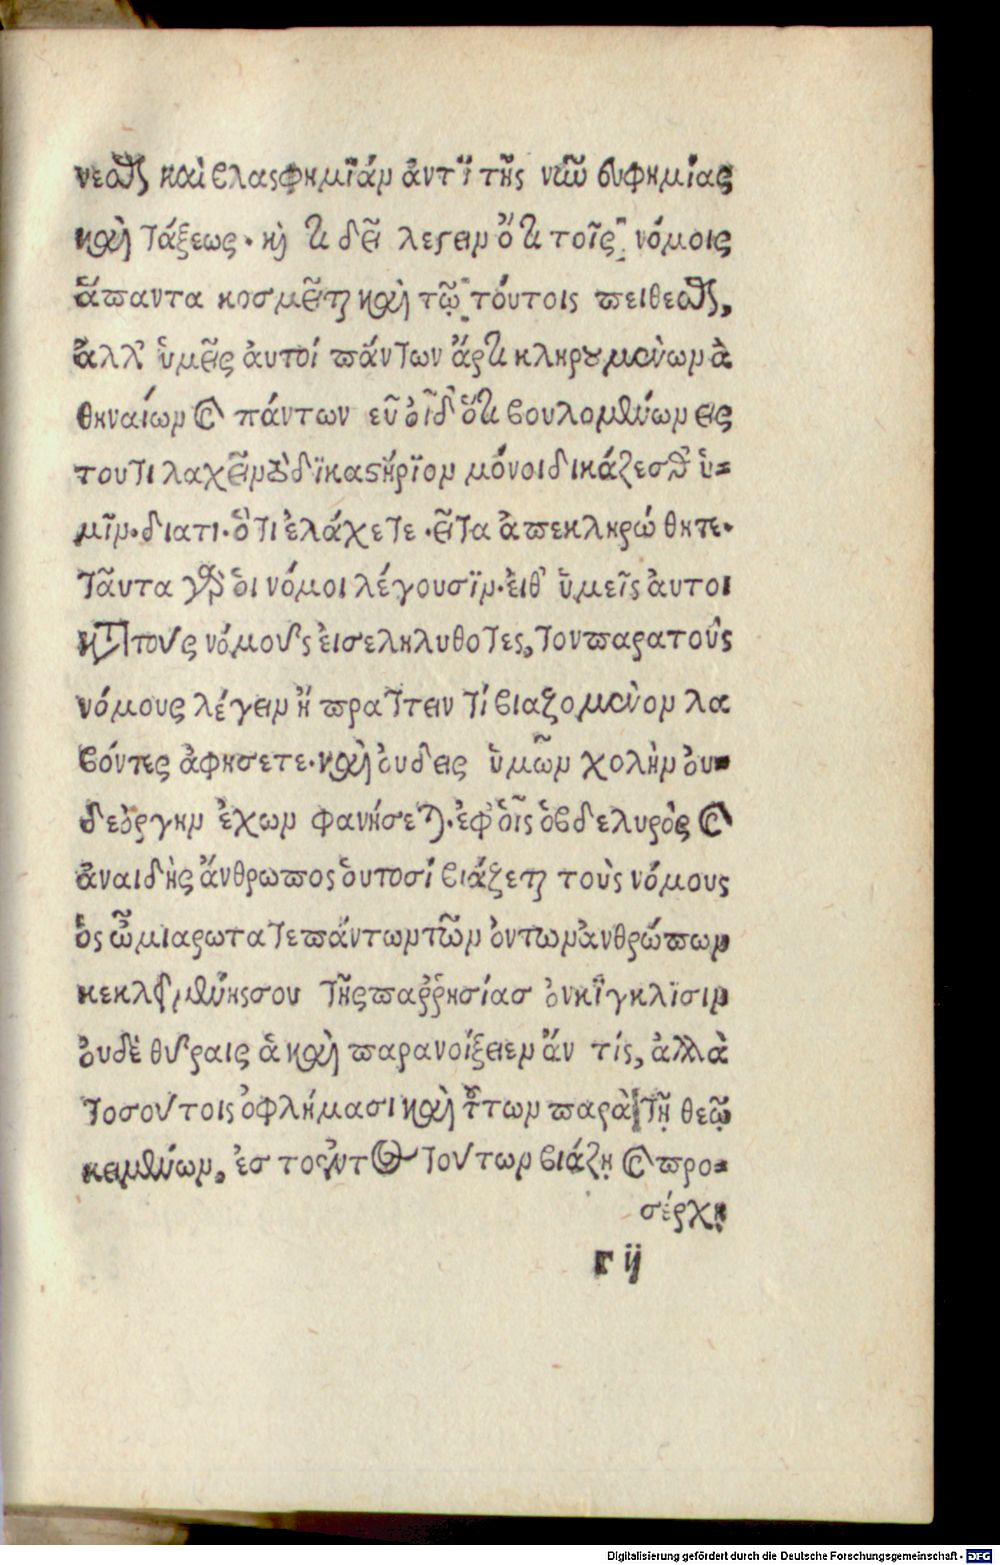 νεσθαι καὶ βλασφημίαν ἀντὶ τῆς νῦν ευφημίας
καὶ τάξεως. καὶ τι δεῖ λεγειν ὅτι τοῖς νόμοις
ἅπαντα κοσμεῖται καὶ τῷ τόυτοις πειθεσθαι,
ἀλλ' ὑμεῖς ἀυτοί πάντων ἄρτι κληρουμένων ἀ
θηναίων καὶ πάντων εῦ ὀῖδ' ὅτι βουλομένων εις
τουτι λαχεῖν τὸ δϊκαστήρϊον μόνοι δικάζεσθε ὑ=
μῖν. διατι. ὅτι ἐλάχετε. εῖτα ἀπεκληρώ θητε.
Ταῦτα γὰρ ὁι νόμοι λέγουσϊν. ἐιθ' ὑμεῖς ἀυτοι
κατὰ τοὺς νόμους ἐισεληλυθοτες, τον παρα τοὺς
νόμους λέγειν ἢ πραττειν τί βιαζομενον λα
βόντες ἀφησετε. καὶ ὀυδεις ὑμῶν χολὴν ὀυ=
δε ὀργην ἐχων φανήσεται. ἐφ' ὁῖς ὁ βδελυρὸς καὶ
ἀναιδὴς ἄνθρωπος ὁυτοσί βιάζεται τοὺς νόμους
ὃς ὦ μιαρωτατε πάντων τῶν ὀντων ἀνθρώπων
κεκλεισμένης σου τῆς παῤῥησίας ὀυ κϊγκλϊσιν
ὀυδὲ θυραις ἁ καὶ παρανοίξειεν ἄν τίς, ἀλλὰ
τοσουτοις ὀφλήμασι καὶ τῶν παρὰ τῇ θεῷ
κειμένων, ἐς τοὐντος τουτων βιάζῃ καὶ προ=
σέρχῃ
Γ ij
Digitalisierung gefördert durch die Deutsche Forschungsgemeinschaft - DFG